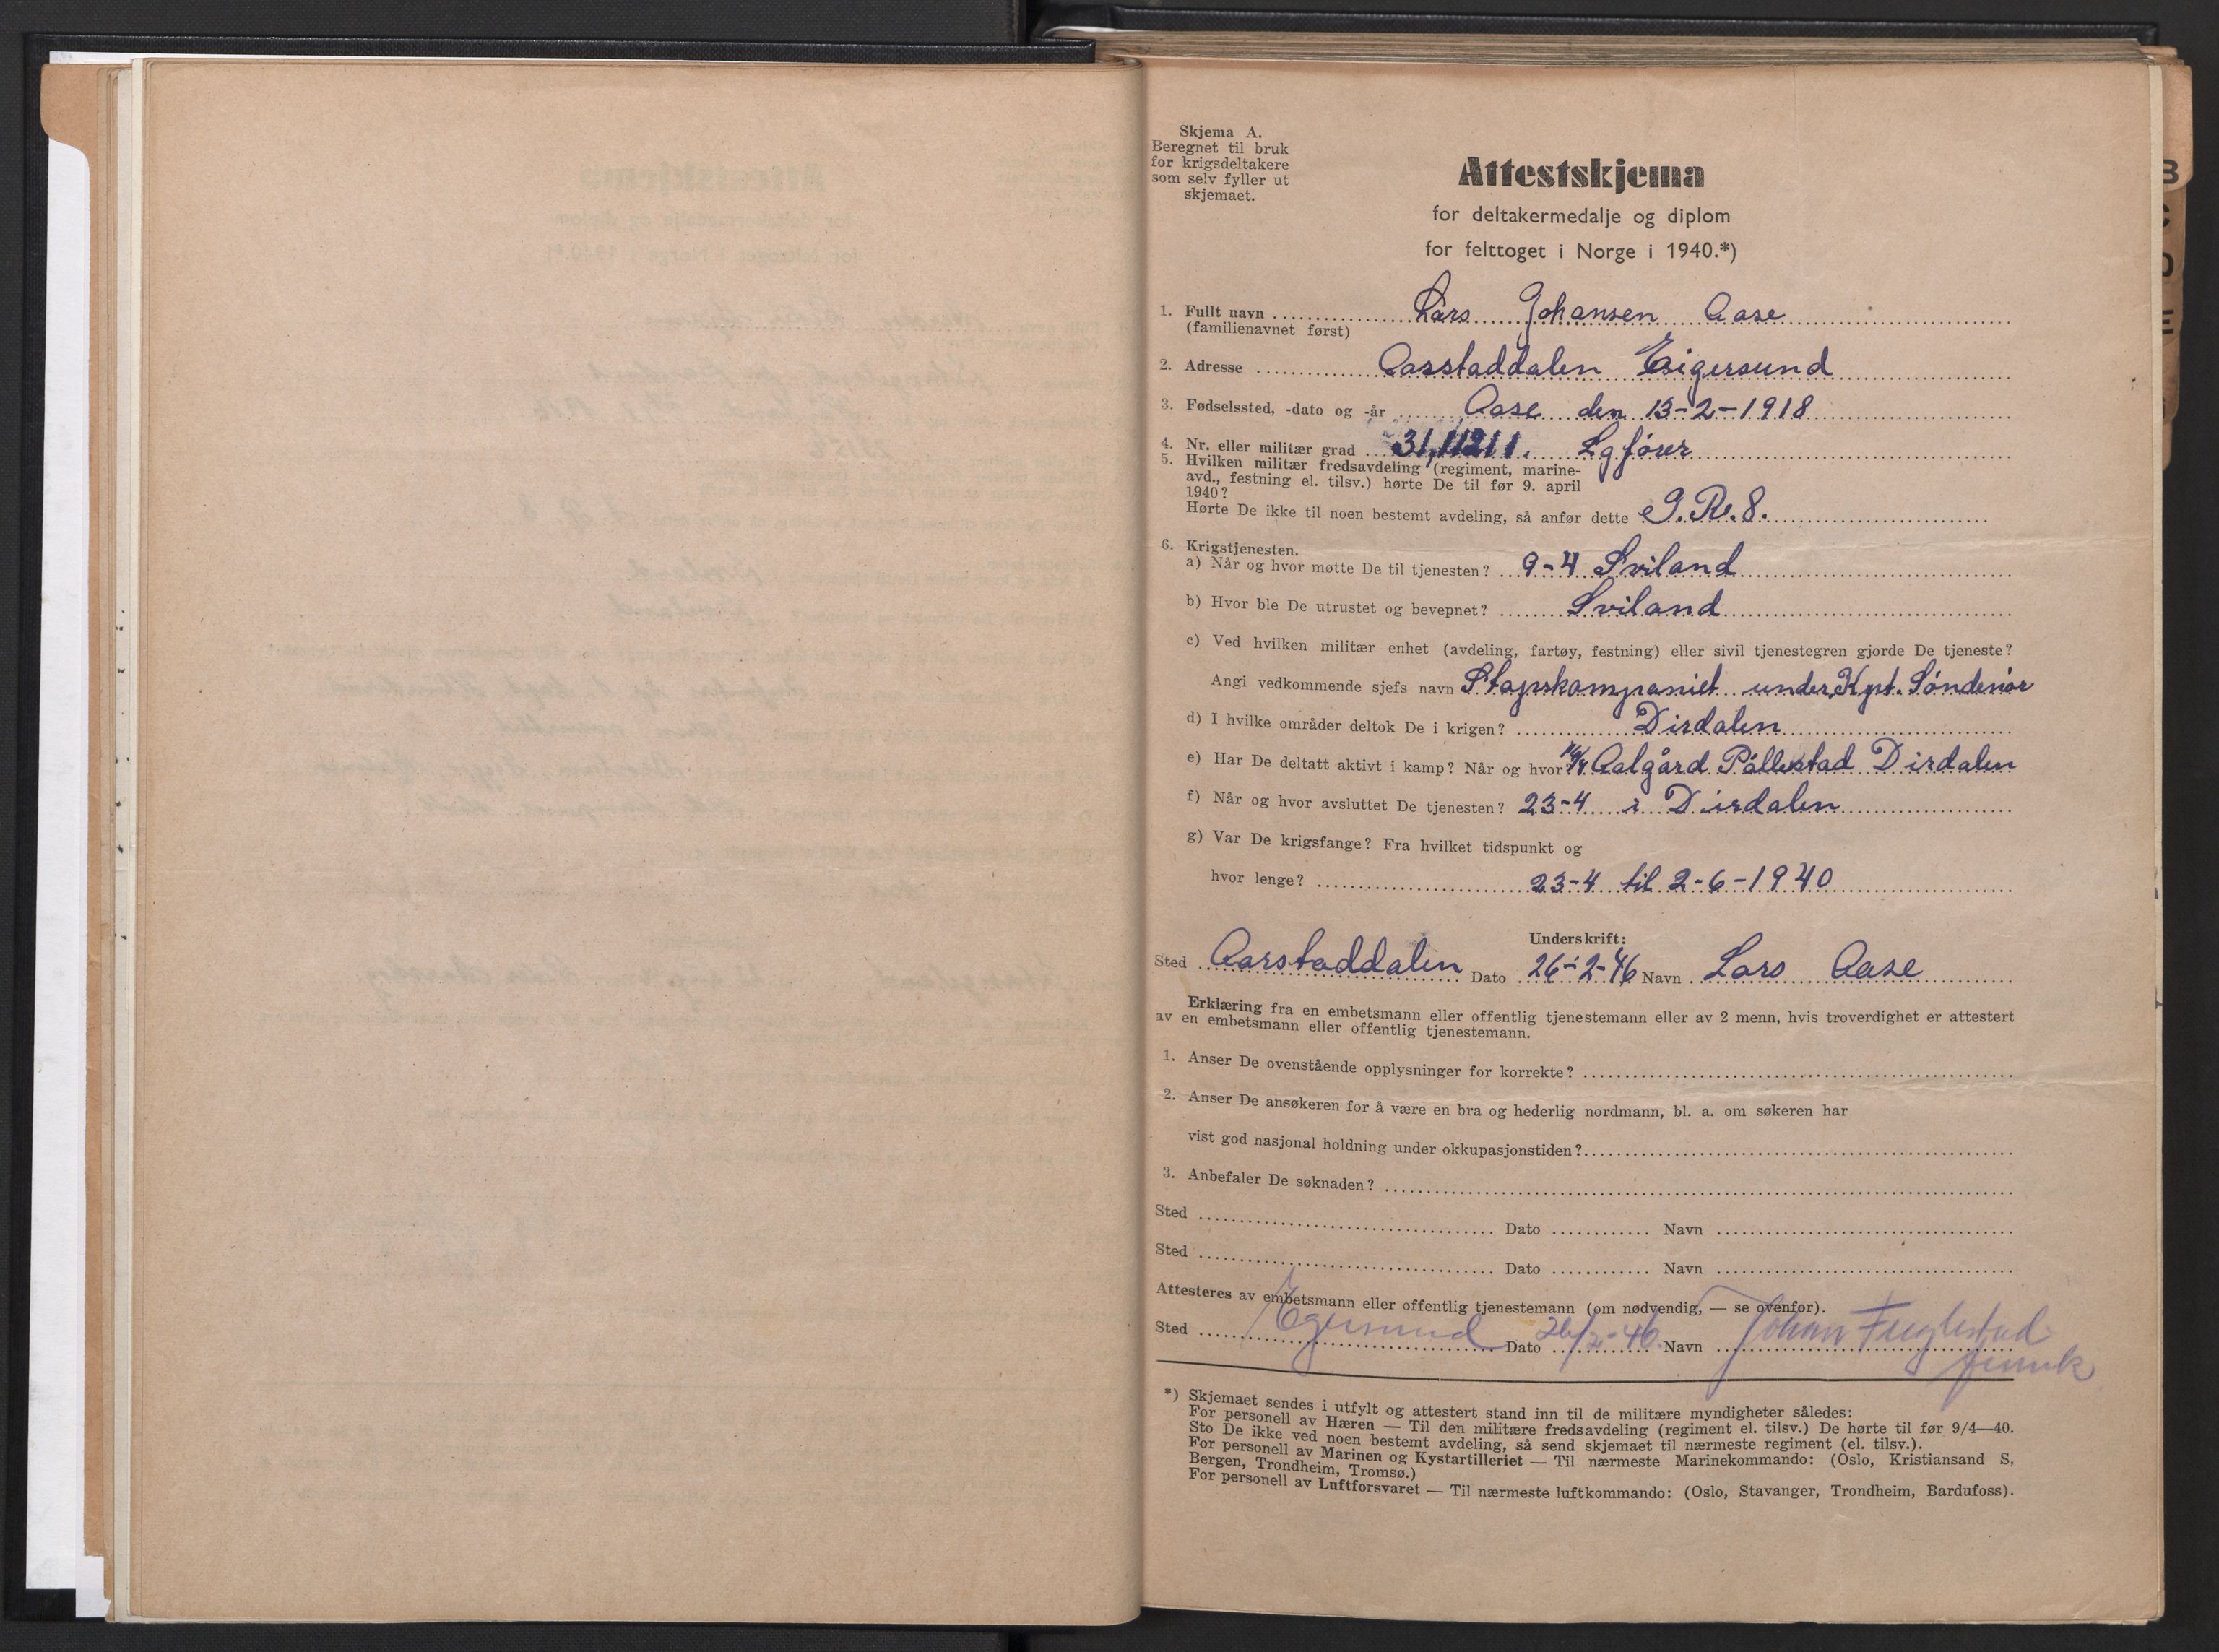 Skjema A.
Beregnet til bruk
for krigsdeltakere
som selv fyller ut
skjemaet.
Attestskjema
for deltakermedalje og diplom
for felttoget i Norge i 1940.*)
1. Fullt navn Lars Johansen Aase
(familienavnet først)
2. Adresse Aarstaddalen Eigersund
3. Fødselssted, -dato og -år Aase den 13-2-1918
4. Nr. eller militær grad Lgfører
5. Hvilken militær fredsavdeling (regiment, marine-
avd., festning el. tilsv.) hørte De til før 9. april
1940?
Hørte De ikke til noen bestemt avdeling, så anfør dette I.R.8.
6. Krigstjenesten.
a) Når og hvor møtte De til tjenesten? 9-4 Sviland
b) Hvor ble De utrustet og bevepnet? Sviland
c) Ved hvilken militær enhet (avdeling, fartøy, festning) eller sivil tjenestegren gjorde De tjeneste?
Angi vedkommende sjefs navn Stapskompaniet under Kpt.
d) I hvilke områder deltok De i krigen? Dirdalen
e) Har De deltatt aktivt i kamp? Når og hvor Aalgård Pållestad Dirdalen
f) Når og hvor avsluttet De tjenesten? 23-4 i Dirdalen
g) Var De krigsfange? Fra hvilket tidspunkt og
hvor lenge? 23-4 til 2-6-1940
Underskrift:
Sted Aarstaddalen Dato 26-2-46 Navn Lars Aase
Erklæring fra en embetsmann eller offentlig tjenestemann eller av 2 menn, hvis troverdighet er attestert
av en embetsmann eller offentlig tjenestemann.
1. Anser De ovenstående opplysninger for korrekte?
2. Anser De ansøkeren for å være en bra og hederlig nordmann, bl. a. om søkeren har
vist god nasjonal holdning under okkupasjonstiden?
3. Anbefaler De søknaden?
Sted Dato Navn
Sted Dato Navn
Attesteres av embetsmann eller offentlig tjenestemann (om nødvendig, — se ovenfor).
Sted Egersund Dato 26/2-46. Navn Johan Fuglestad
*) Skjemaet sendes i utfylt og attestert stand inn til de militære myndigheter således:
For personell av Hæren — Til den militære fredsavdeling (regiment el. tilsv.) De hørte til før 9/4—40.
Sto De ikke ved noen bestemt avdeling, så send skjemaet til nærmeste regiment (el. tilsv.).
For personell av Marinen og Kystartilleriet — Til nærmeste Marinekommando: (Oslo, Kristiansand S,
Bergen, Trondheim, Tromsø.)
For personell av Luftforsvaret — Til nærmeste luftkommando: (Oslo, Stavanger, Trondheim, Bardufoss).